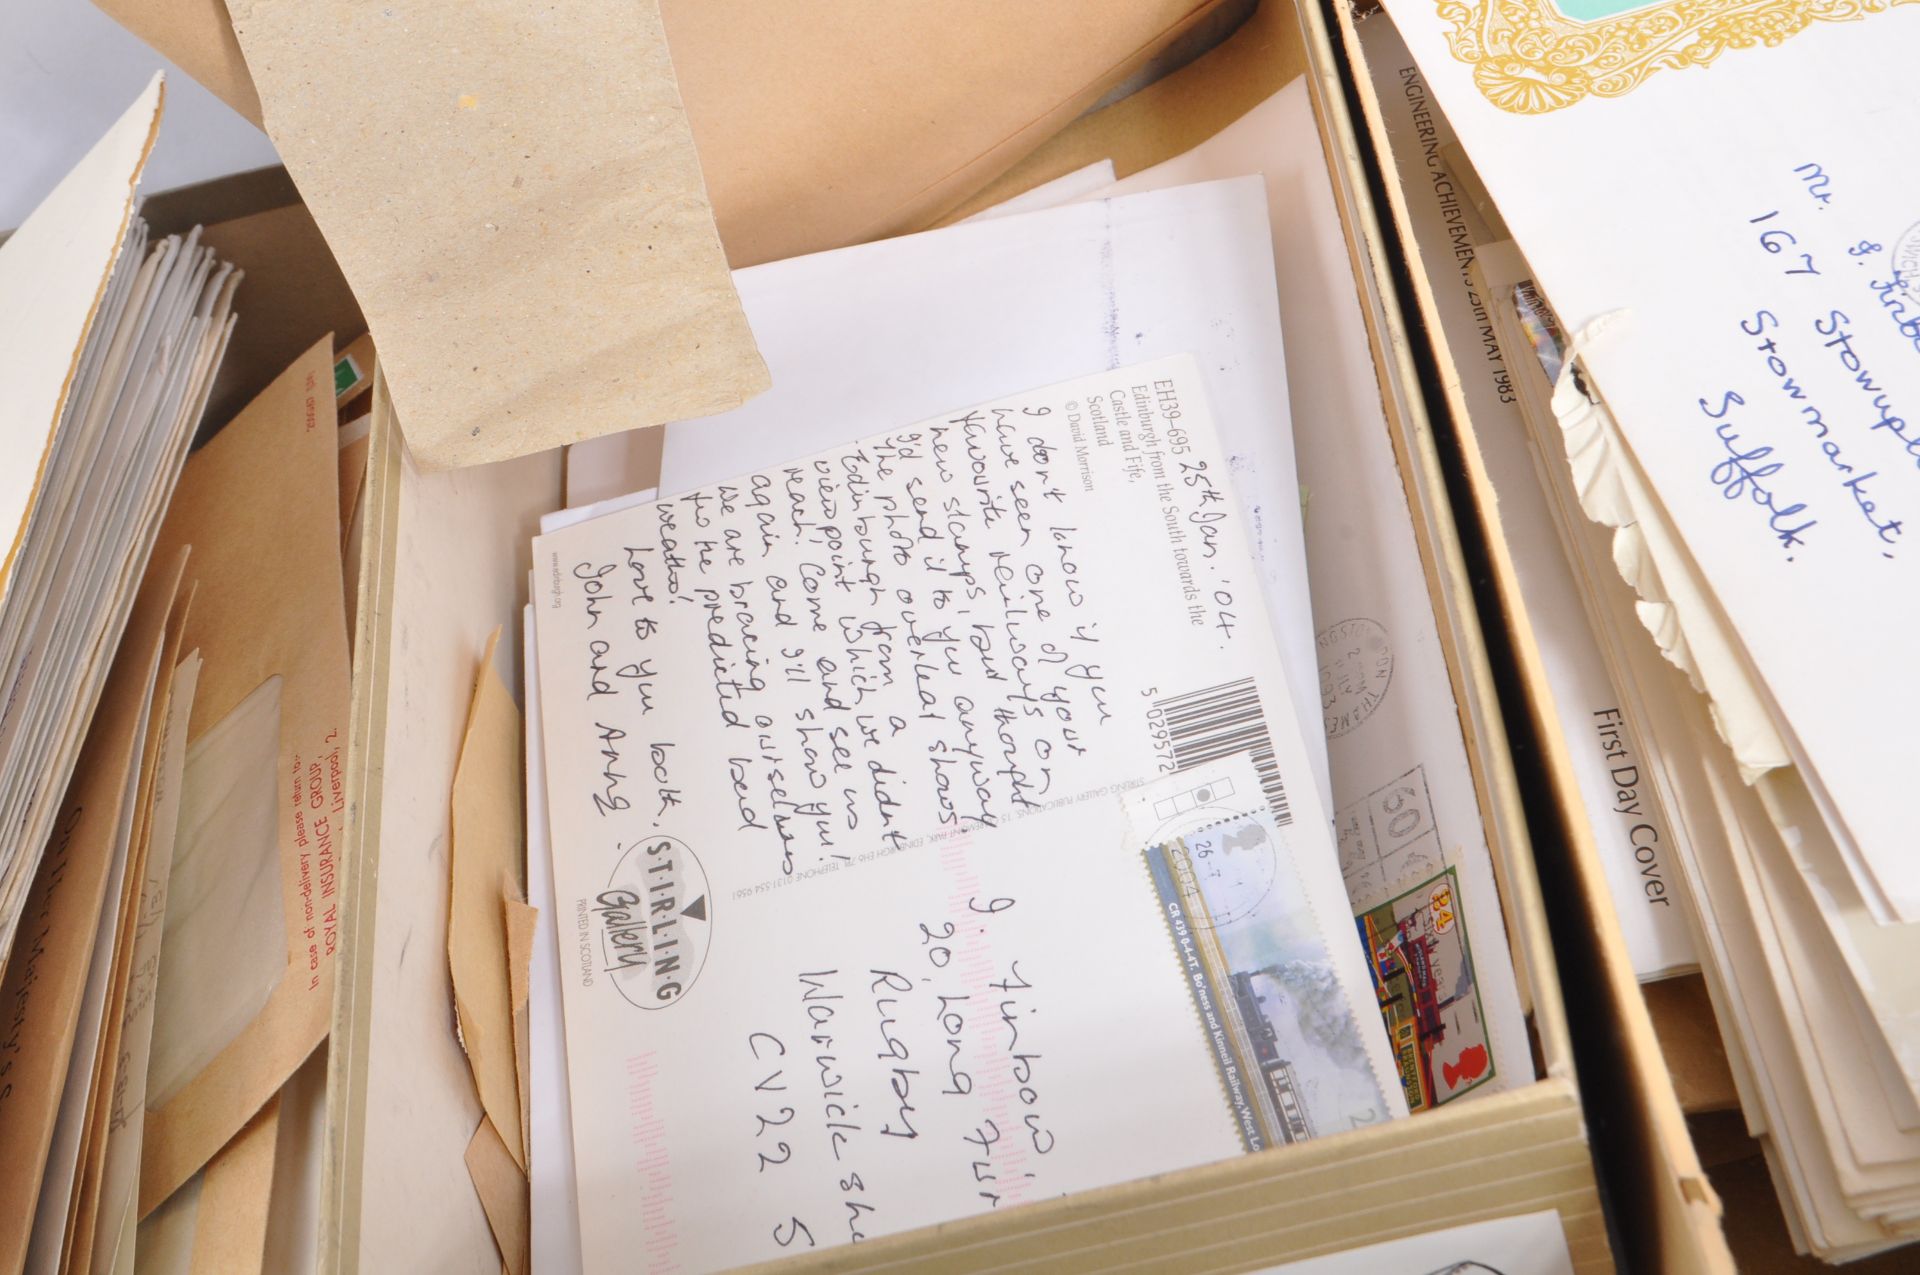 EH39-695 25th Jan. '04.
Edinburgh from the South towards the
Castle and Fife,
Scotland
© David Morrison
I don't know if you
have seen one of your
favourite railways on
new stamps, but thought
I'd send it to you anyway
The photo overleaf shows
Edinburgh from a
viewpoint which we didn't
reach. Come and see us
again and I'll show you!
We are bracing ourselves
for the predicted bad
weather!
Love to you both.
John and
www.edinburgh.org
5 029572
STIRLING GALLERY PUBLICATIONS, 15 CLAREMONT PARK, EDINBURGH EH6 7PJ, TELEPHONE 0131 554 9561
STIRLING
Gallery
PRINTED IN SCOTLAND
26-
2004
CR 439 0-4-4T. Bo'ness and Kinneil Railway, West Lo
2
J. Finbow,
20, Long Fur
Rugby
Warwick shi
CV22 5
60
ON THAMES
2
1993
ENGINEERING ACHIEVEMENTS 25th MAY 1983
First Day Cover
Mr. J. Finbo
167 Stowupla
Stowmarket,
Suffolk.
In case of non-delivery please return to:-
ROYAL INSURANCE GROUP,
Liverpool, 2.
On Her Majesty's S